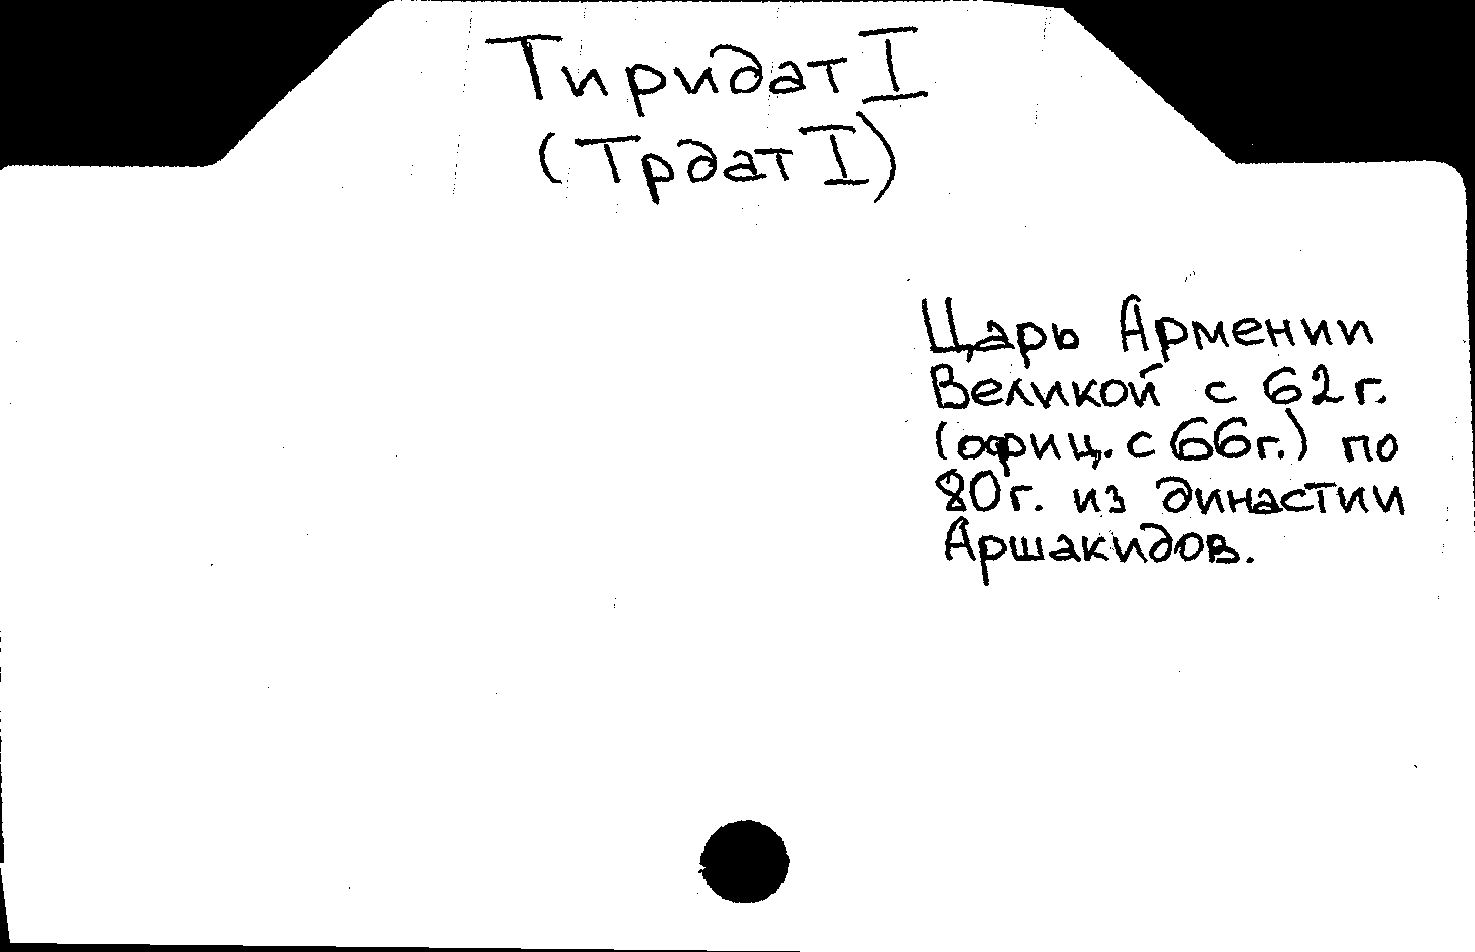 Тиридат I
(Трдат I)
Царь Армении
Великой с 62 г.
(офиц. с 66 г.) по
80 г. из династии
Аршакидов.